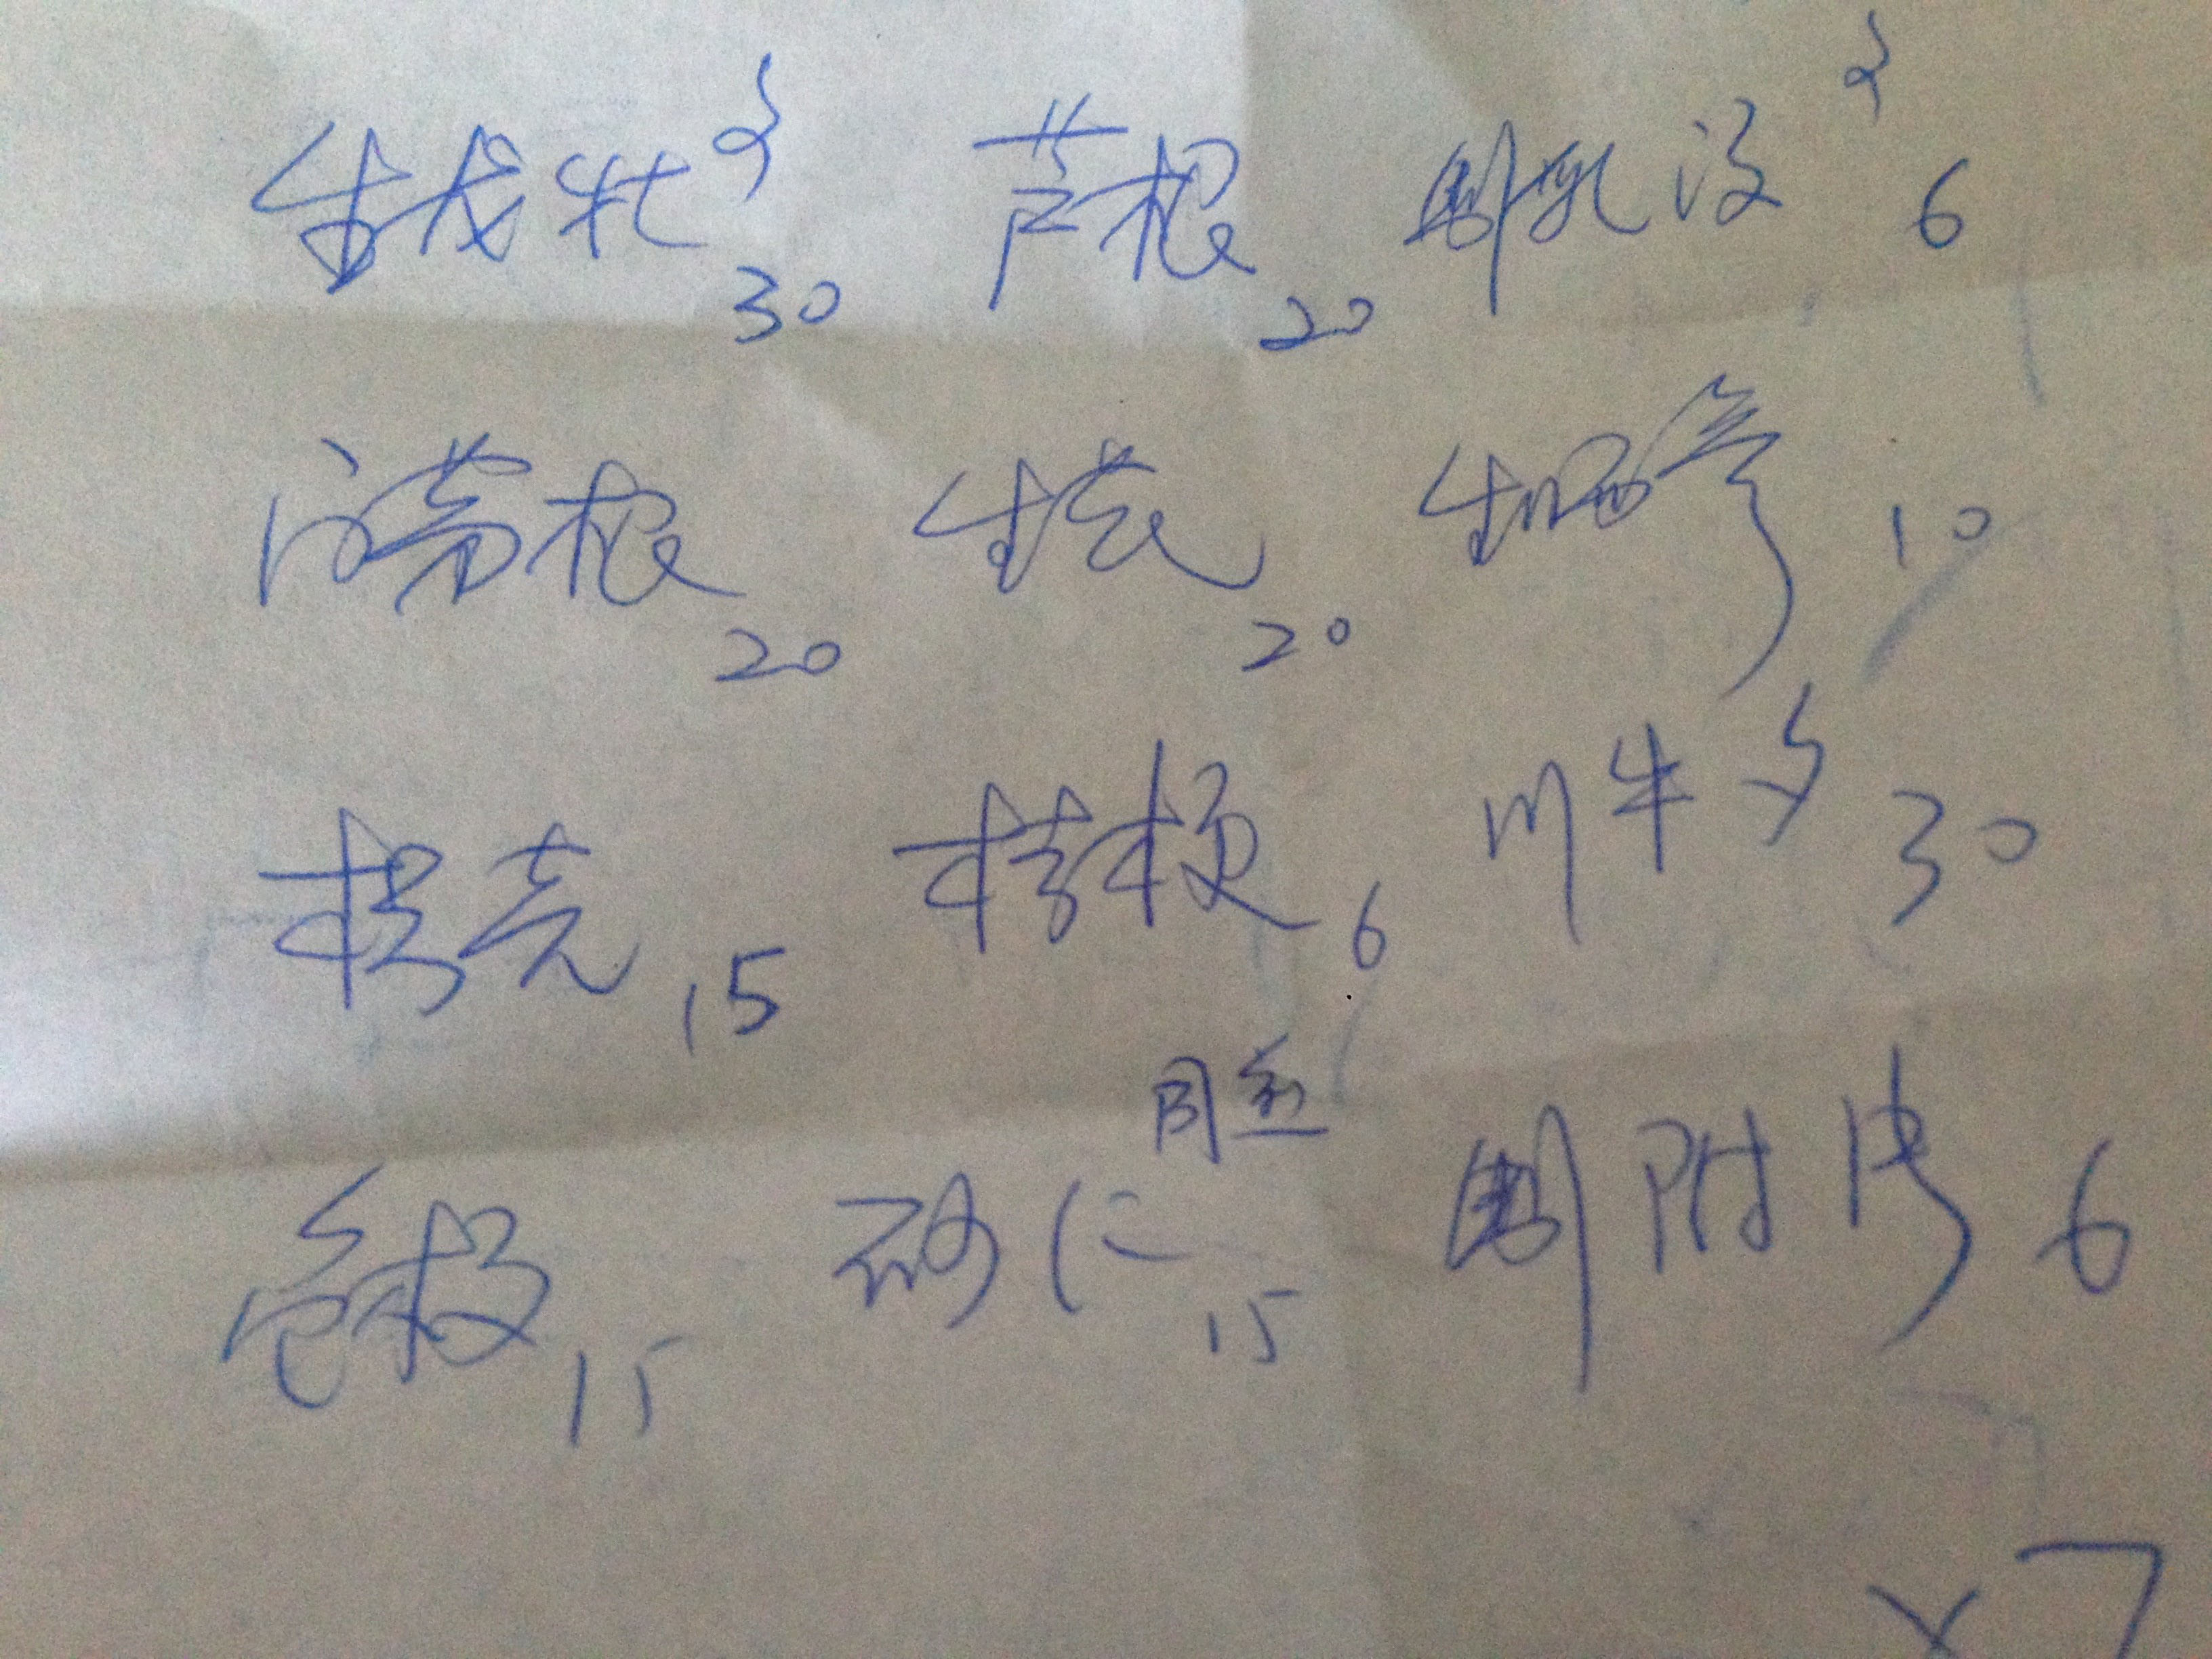 生龙牡 30 芦根 20 制乳没 6
白茅根 20 生芪 20 生晒参 10
枳壳 15 桔梗 6 川牛夕 30
同煎
仓术 15 砂仁 15 制附片 6
x7